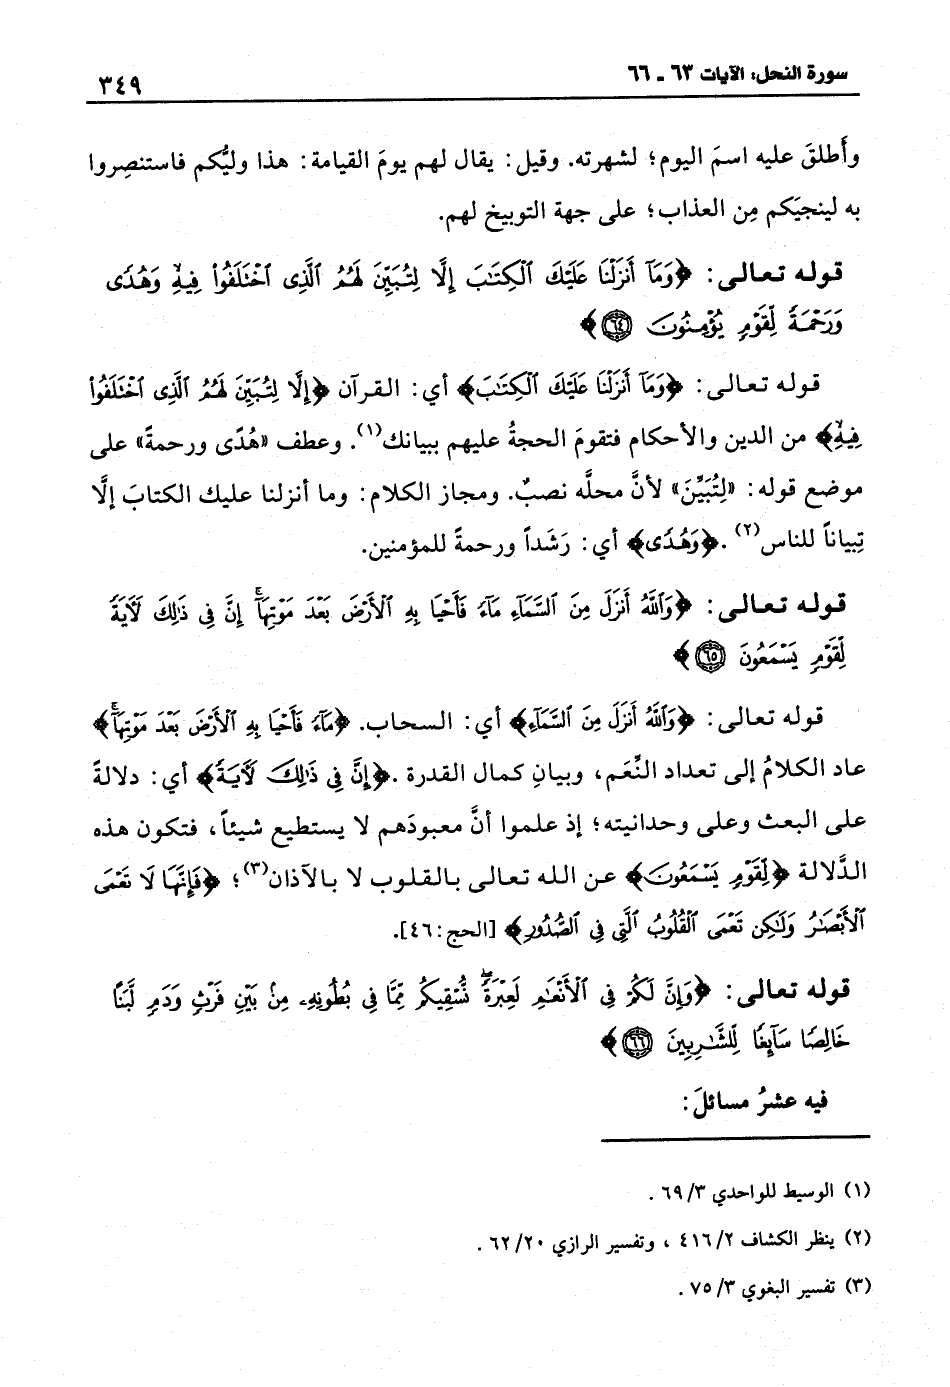 سورة النحل: الآيات ٦٣ ـ ٦٦
٣٤٩
وأَطلقَ عليه اسمَ اليوم؛ لشهرته. وقيل: يقال لهم يومَ القيامة: هذا وليُّكم فاستنصِروا
به لينجيَكم مِن العذاب؛ على جهة التوبيخ لهم.
قوله تعالى: ﴿وَمَآ أَنزَلْنَا عَلَيْكَ ٱلْكِتَٰبَ إِلَّا لِتُبَيِّنَ لَهُمُ ٱلَّذِى ٱخْتَلَفُوا۟ فِيهِ ۙ وَهُدًى
وَرَحْمَةً لِّقَوْمٍ يُؤْمِنُونَ ٦٤﴾
قوله تعالى: ﴿وَمَآ أَنزَلْنَا عَلَيْكَ ٱلْكِتَٰبَ﴾ أي: القرآن ﴿إِلَّا لِتُبَيِّنَ لَهُمُ ٱلَّذِى ٱخْتَلَفُوا۟
فِيهِ ۙ﴾ من الدين والأحكام فتقومَ الحجةُ عليهم ببيانك(١). وعطف «هُدًى ورحمةً» على
موضع قوله: «لِتُبَيِّنَ» لأنَّ محلَّه نصبٌ. ومجاز الكلام: وما أنزلنا عليك الكتابَ إلَّا
تِبياناً للناس(٢). ﴿وَهُدًى﴾ أي: رَشَداً ورحمةً للمؤمنين.
قوله تعالى: ﴿وَٱللَّهُ أَنزَلَ مِنَ ٱلسَّمَآءِ مَآءً فَأَحْيَا بِهِ ٱلْأَرْضَ بَعْدَ مَوْتِهَآ ۚ إِنَّ فِى ذَٰلِكَ لَآيَةً
لِّقَوْمٍ يَسْمَعُونَ ٦٥﴾
قوله تعالى: ﴿وَٱللَّهُ أَنزَلَ مِنَ ٱلسَّمَآءِ﴾ أي: السحاب. ﴿مَآءً فَأَحْيَا بِهِ ٱلْأَرْضَ بَعْدَ مَوْتِهَآ ۚ﴾
عاد الكلامُ إلى تعداد النِّعَم، وبيانِ كمال القدرة. ﴿إِنَّ فِى ذَٰلِكَ لَآيَةً﴾ أي: دلالةً
على البعث وعلى وحدانيته؛ إذ علموا أنَّ معبودَهم لا يستطيع شيئاً، فتكون هذه
الدَّلالة ﴿لِّقَوْمٍ يَسْمَعُونَ﴾ عن الله تعالى بالقلوب لا بالآذان(٣)؛ ﴿فَإِنَّهَا لَا تَعْمَى
ٱلْأَبْصَٰرُ وَلَٰكِن تَعْمَى ٱلْقُلُوبُ ٱلَّتِى فِى ٱلصُّدُورِ﴾ [الحج: ٤٦].
قوله تعالى: ﴿وَإِنَّ لَكُمْ فِى ٱلْأَنْعَٰمِ لَعِبْرَةً ۖ نُّسْقِيكُم مِّمَّا فِى بُطُونِهِۦ مِنۢ بَيْنِ فَرْثٍ وَدَمٍ لَّبَنًا
خَالِصًا سَآئِغًا لِّلشَّٰرِبِينَ ٦٦﴾
فيه عشرُ مسائلَ:
(١) الوسيط للواحدي ٦٩/٣ .
(٢) ينظر الكشاف ٤١٦/٢ ، وتفسير الرازي ٦٢/٢٠ .
(٣) تفسير البغوي ٧٥/٣ .